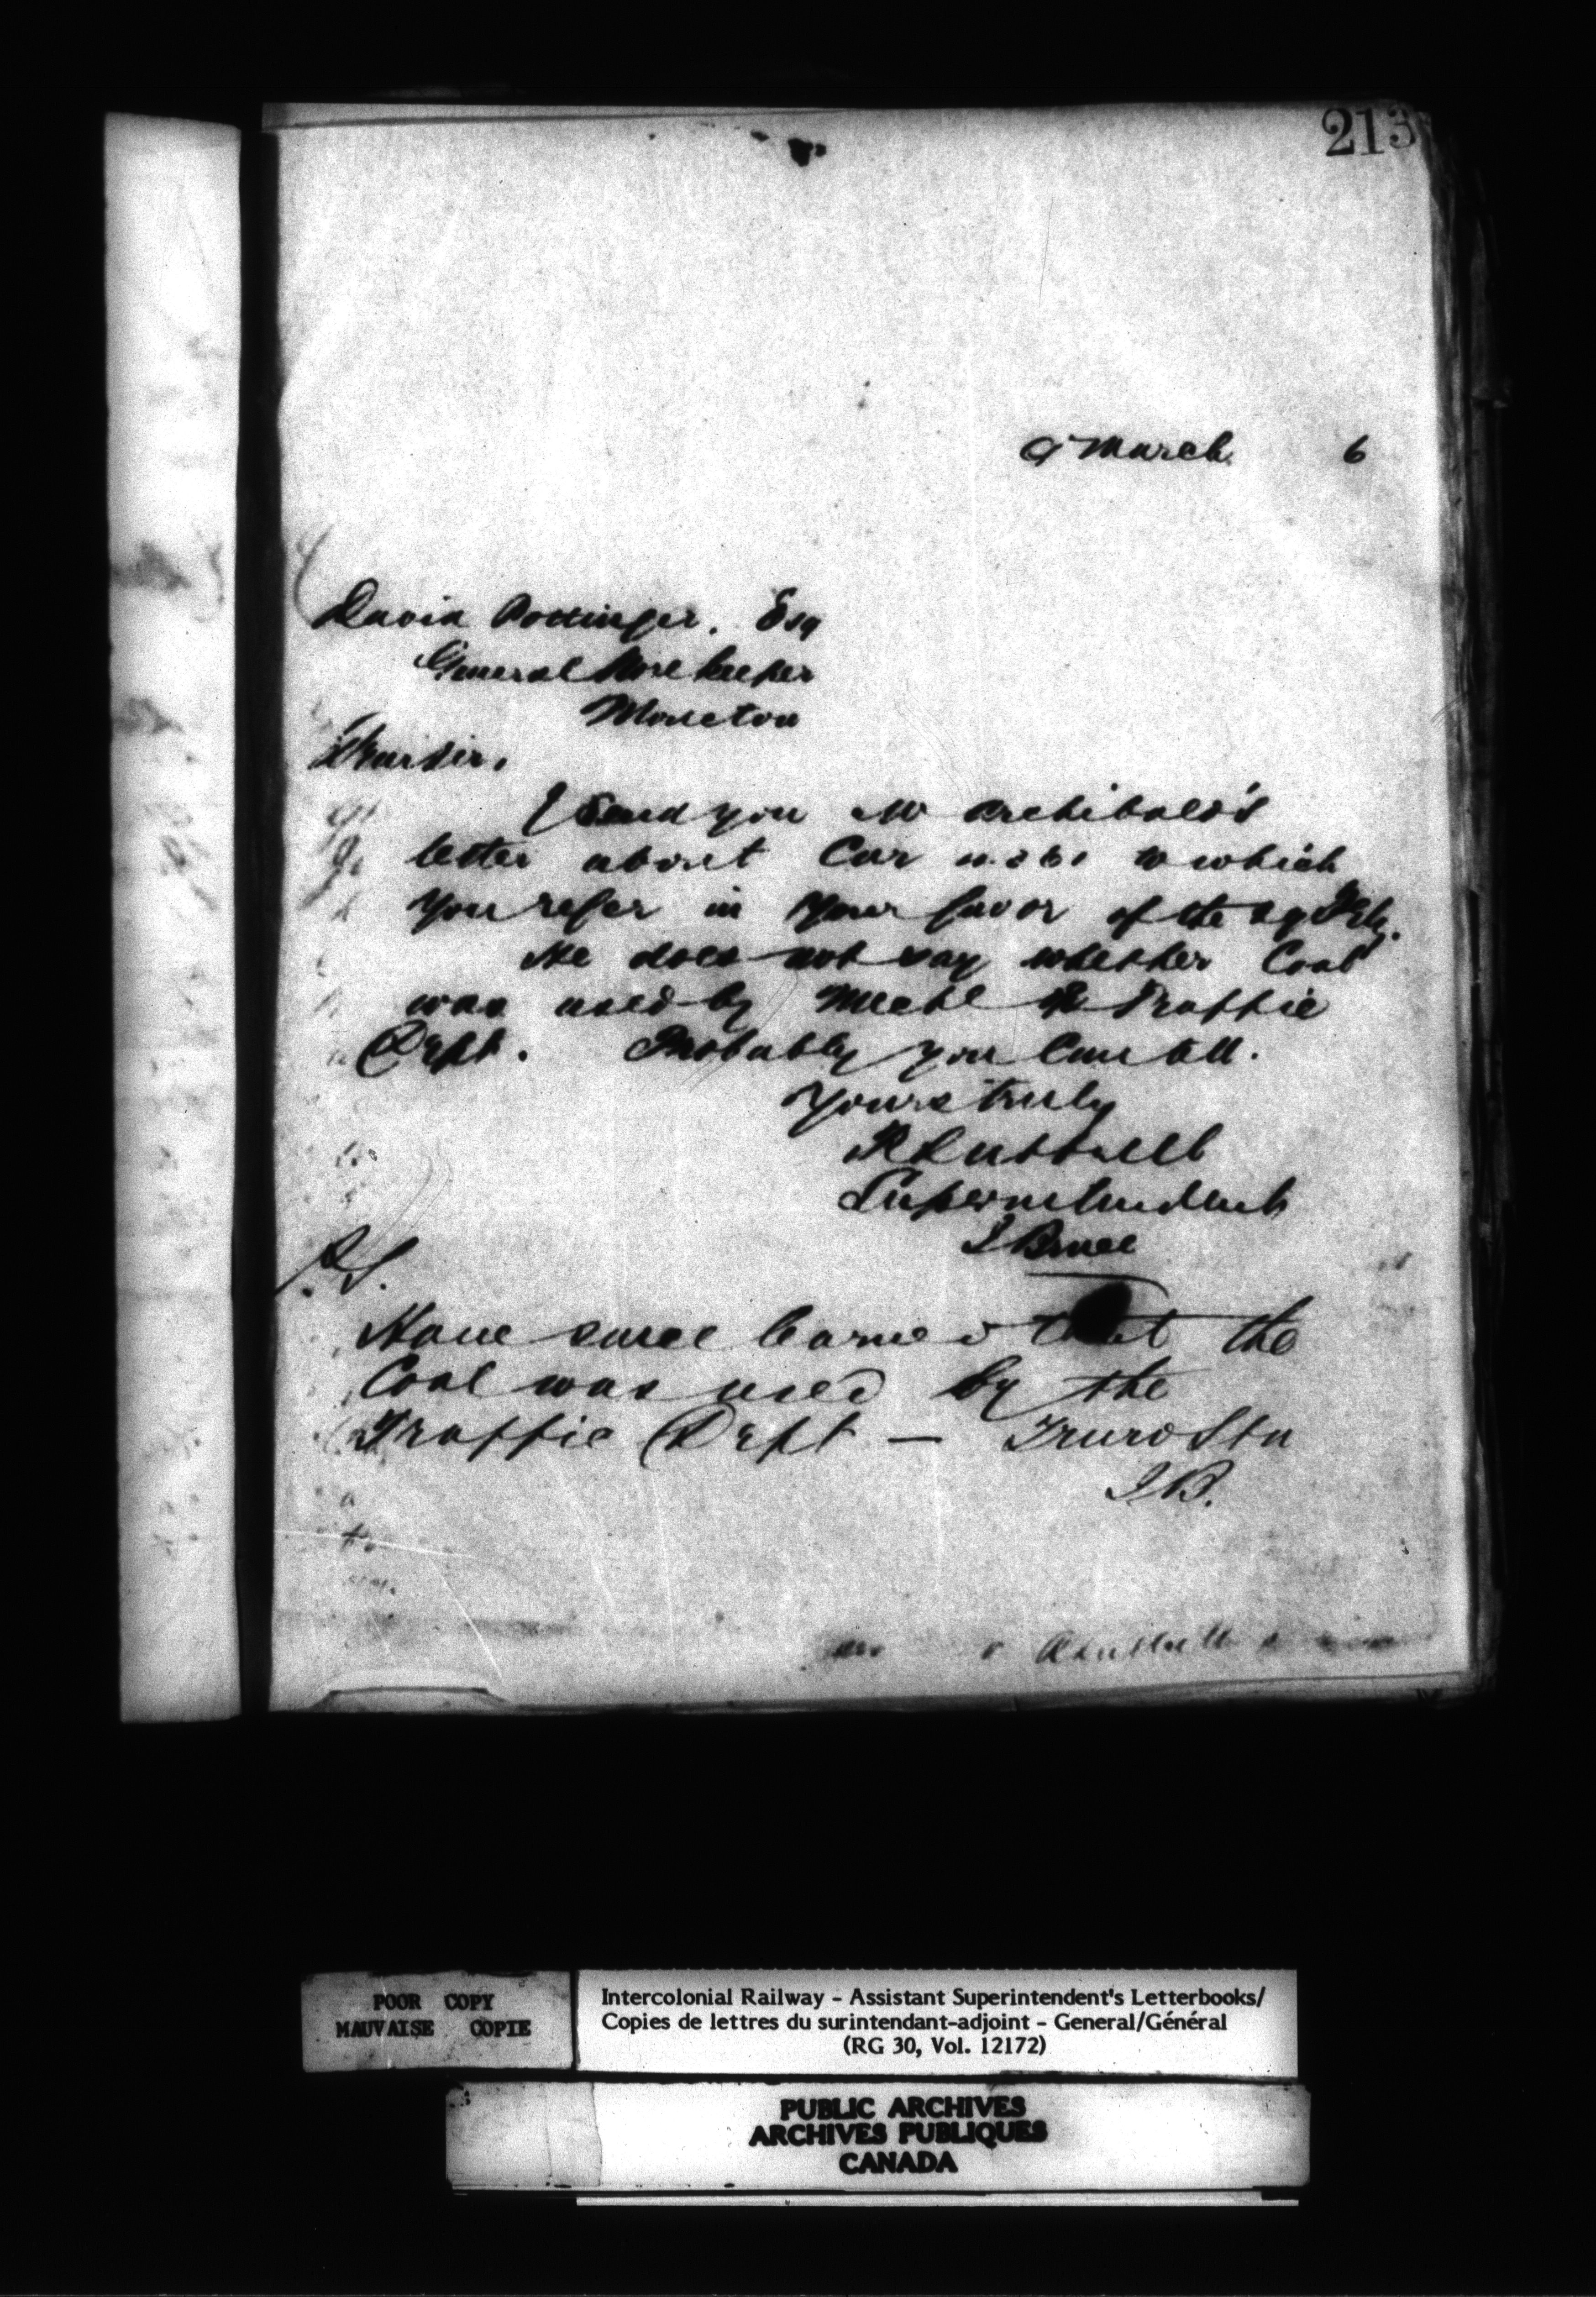 213
9 March 6
David Pottinger. Esq
General Storekeeper
Moncton
Dear Sir,
I send you Mr Archibald's
letter about Car to which
you refer in your favor of the 29 Feby.
He does not say whether Coal
was used by Mechl or Traffic
Dept. Probably you can tell.
Yours truly
R Luttrell
Superintendent
J Bruce
P.S.
Have since learned that the
Coal was used by the
Traffic Dept — Truro Stn
J B.
POOR COPY
MAUVAISE COPIE
Intercolonial Railway - Assistant Superintendent's Letterbooks/
Copies de lettres du surintendant-adjoint - General/Général
(RG 30, Vol. 12172)
PUBLIC ARCHIVES
ARCHIVES PUBLIQUES
CANADA